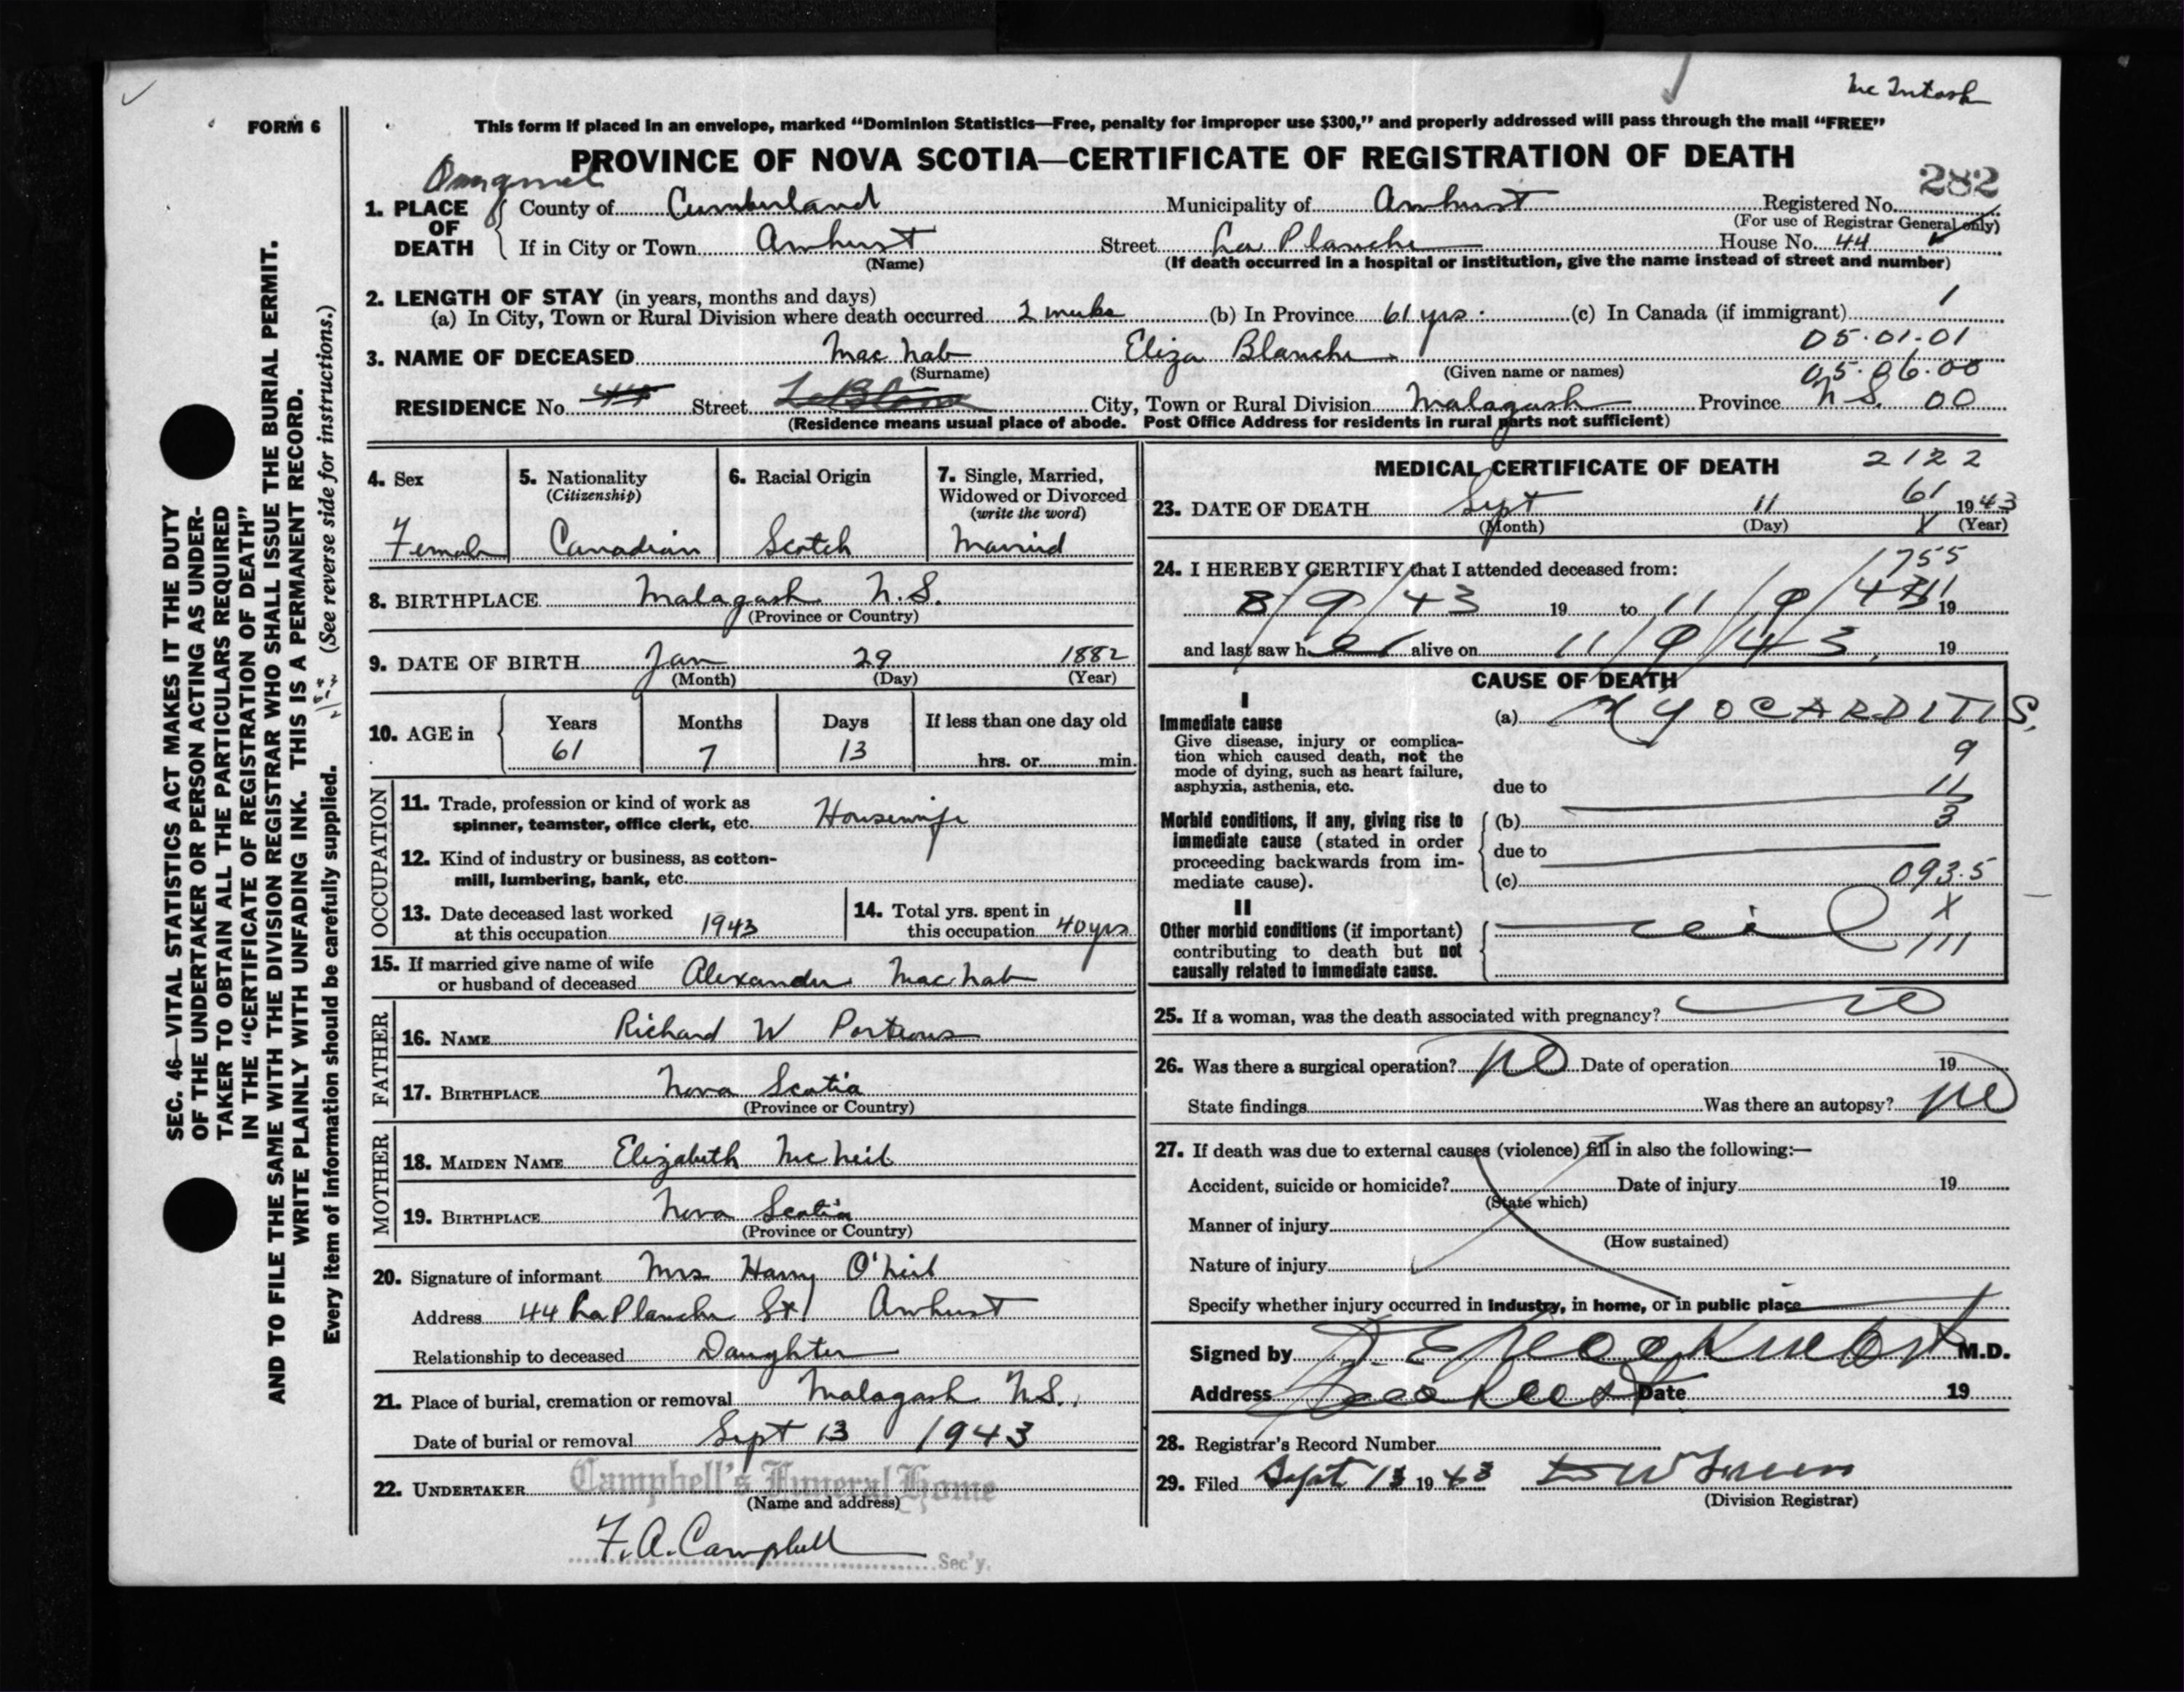 Mc Intosh
FORM 6
This form if placed in an envelope, marked “Dominion Statistics—Free, penalty for improper use $300,” and properly addressed will pass through the mail “FREE”
PROVINCE OF NOVA SCOTIA—CERTIFICATE OF REGISTRATION OF DEATH
282
1. PLACE OF DEATH
County of Cumberland Municipality of Amherst Registered No.
(For use of Registrar General only)
If in City or Town Amherst Street La Planche House No. 44
(Name) (If death occurred in a hospital or institution, give the name instead of street and number)
2. LENGTH OF STAY (in years, months and days)
(a) In City, Town or Rural Division where death occurred 2 weeks (b) In Province 61 yrs. (c) In Canada (if immigrant) 1
05.01.01
3. NAME OF DECEASED Mac Nab Eliza Blanche
(Surname) (Given name or names) 05.06.00
RESIDENCE No. 44 Street City, Town or Rural Division Malagash Province N.S. 00
(Residence means usual place of abode. Post Office Address for residents in rural parts not sufficient)
4. Sex
Female
5. Nationality
(Citizenship)
Canadian
6. Racial Origin
Scotch
7. Single, Married,
Widowed or Divorced
(write the word)
Married
8. BIRTHPLACE Malagash N.S.
(Province or Country)
9. DATE OF BIRTH Jan 29 1882
(Month) (Day) (Year)
10. AGE in Years Months Days If less than one day old
61 7 13 hrs. or min.
OCCUPATION
11. Trade, profession or kind of work as
spinner, teamster, office clerk, etc. Housewife
12. Kind of industry or business, as cotton-
mill, lumbering, bank, etc.
13. Date deceased last worked
at this occupation 1943
14. Total yrs. spent in
this occupation 40 yrs
15. If married give name of wife
or husband of deceased Alexander Mac Nab
FATHER
16. NAME Richard W Porteous
17. BIRTHPLACE Nova Scotia
(Province or Country)
MOTHER
18. MAIDEN NAME Elizabeth Mc Neil
19. BIRTHPLACE Nova Scotia
(Province or Country)
20. Signature of informant Mrs Harry O'Neil
Address 44 La Planche St Amherst
Relationship to deceased Daughter
21. Place of burial, cremation or removal Malagash N.S.
Date of burial or removal Sept 13 1943
22. UNDERTAKER Campbell's Funeral Home
(Name and address)
F. A. Campbell
Sec'y.
MEDICAL CERTIFICATE OF DEATH 2122
61
23. DATE OF DEATH Sept 11 1943
(Month) (Day) X (Year)
1755
24. I HEREBY CERTIFY that I attended deceased from:
8/9/43 19 to 11/9/43 19
and last saw her alive on 11/9/43, 19
CAUSE OF DEATH
I
Immediate cause
Give disease, injury or complica-
tion which caused death, not the
mode of dying, such as heart failure,
asphyxia, asthenia, etc.
(a) MYOCARDITIS.
9
due to 11
Morbid conditions, if any, giving rise to
immediate cause (stated in order
proceeding backwards from im-
mediate cause).
(b) 3
due to
(c) 093.5
II
Other morbid conditions (if important)
contributing to death but not
causally related to immediate cause.
X
111
25. If a woman, was the death associated with pregnancy? no
26. Was there a surgical operation? no Date of operation 19
State findings Was there an autopsy? no
27. If death was due to external causes (violence) fill in also the following:—
Accident, suicide or homicide? Date of injury 19
(State which)
Manner of injury
(How sustained)
Nature of injury
Specify whether injury occurred in industry, in home, or in public place
Signed by M.D.
Address Date 19
28. Registrar's Record Number
29. Filed Sept 13 1943
(Division Registrar)
SEC. 46—VITAL STATISTICS ACT MAKES IT THE DUTY
OF THE UNDERTAKER OR PERSON ACTING AS UNDER-
TAKER TO OBTAIN ALL THE PARTICULARS REQUIRED
IN THE “CERTIFICATE OF REGISTRATION OF DEATH”
AND TO FILE THE SAME WITH THE DIVISION REGISTRAR WHO SHALL ISSUE THE BURIAL PERMIT.
WRITE PLAINLY WITH UNFADING INK. THIS IS A PERMANENT RECORD.
Every item of information should be carefully supplied. (See reverse side for instructions.)